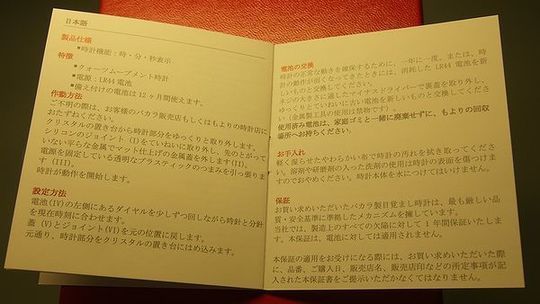 日本語
製品仕様
*時計機能：時・分・秒表示
特徴
*クォーツムーブメント時計
*電源：LR44 電池
*備え付けの電池は12ヶ月間使えます。
作動方法
ご不明の際は、お客様のバカラ販売店もしくはもよりの時計店に
おたずねください。
クリスタルの置き台から時計部分をゆっくりと取り外します。
シリコンのジョイント (I) をていねいに取り外し、先のとがって
いない平らな金属でマット仕上げの金属蓋を外します(II)。
電源を固定している透明なプラスティックのつまみを引っ張りま
す (III)。
時計が作動を開始します。
設定方法
電池 (IV) の左側にあるダイヤルを少しずつ回しながら時計と分針
を現在時刻に合わせます。
蓋 (V) とジョイント (VI) を元の位置に戻します。
元通り、時計部分をクリスタルの置き台にはめ込みます。
電池の交換
時計の正常な動きを確保するために、一年に一度、または、時
計の動作が弱くなってきたときには、消耗した LR44 電池を新
しいものと交換してください。
ネジの大きさに適したマイナスドライバーで裏蓋を取り外し、
ゆっくりとていねいに古い電池を新しいものと交換してくださ
い (金属製工具の使用は禁物です)
使用済み電池は、家庭ゴミと一緒に廃棄せずに、もよりの回収
場所へお持ちください。
お手入れ
軽く湿らせたやわらかい布で時計の汚れを拭き取ってくださ
い。溶剤や研磨剤の入った洗剤の使用は時計の表面を傷つけま
すのでおやめください。時計本体を水につけてはいけません。
保証
お買い求めいただいたバカラ製目覚まし時計は、最も厳しい品
質・安全基準に準拠したメカニズムを擁しています。
当社では、製造上のすべての欠陥に対して 1 年間保証いたしま
す。本保証は、電池に対しては適用されません。
本保証の適用をお受けになる際には、お買い求めいただいた際
に、品番、ご購入日、販売店名、販売店印などの所定事項が記
入された本保証書をご提示いただかなくてはなりません。